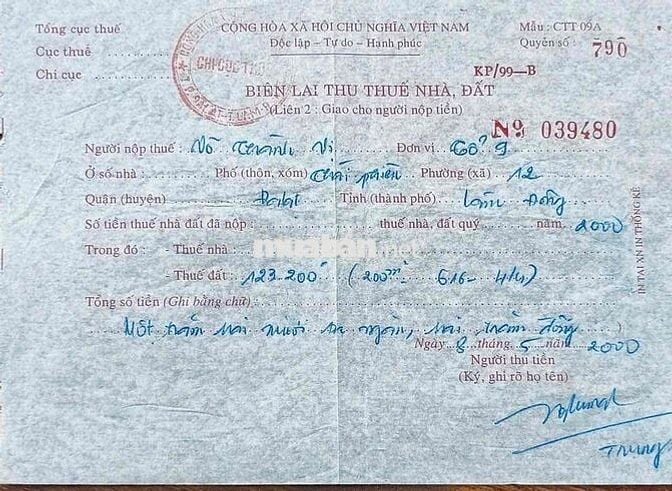 Tổng cục thuế
Cục thuế
Chi cục
CHI CỤC THUẾ
CỘNG HÒA XÃ HỘI CHỦ NGHĨA VIỆT NAM
Độc lập – Tự do – Hạnh phúc
Mẫu : CTT 09A
Quyển số : 790
KP/99–B
BIÊN LAI THU THUẾ NHÀ, ĐẤT
(Liên 2 : Giao cho người nộp tiền)
Nº 039480
Người nộp thuế : Võ Thành Vị Đơn vị : Tổ 9
Ở số nhà : Phố (thôn, xóm) Thái Phiên Phường (xã) 12
Quận (huyện) Đalạt Tỉnh (thành phố) Lâm Đồng
Số tiền thuế nhà đất đã nộp : thuế nhà, đất quý năm 2000
Trong đó : - Thuế nhà :
muaban.net
- Thuế đất : 123.200đ (200m² 616- 4/4)
Tổng số tiền (Ghi bằng chữ)
Một trăm hai mươi ba ngàn, hai trăm đồng )
Ngày 8 tháng 5 năm 2000
Người thu tiền
(Ký, ghi rõ họ tên)
Trung
IN TẠI XN IN THỐNG KÊ